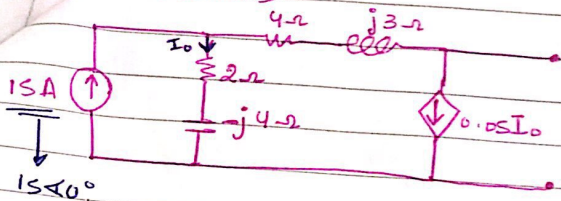 4Ω j3Ω
I₀
2Ω
15A
-j4Ω
0.05I₀
15∢0°